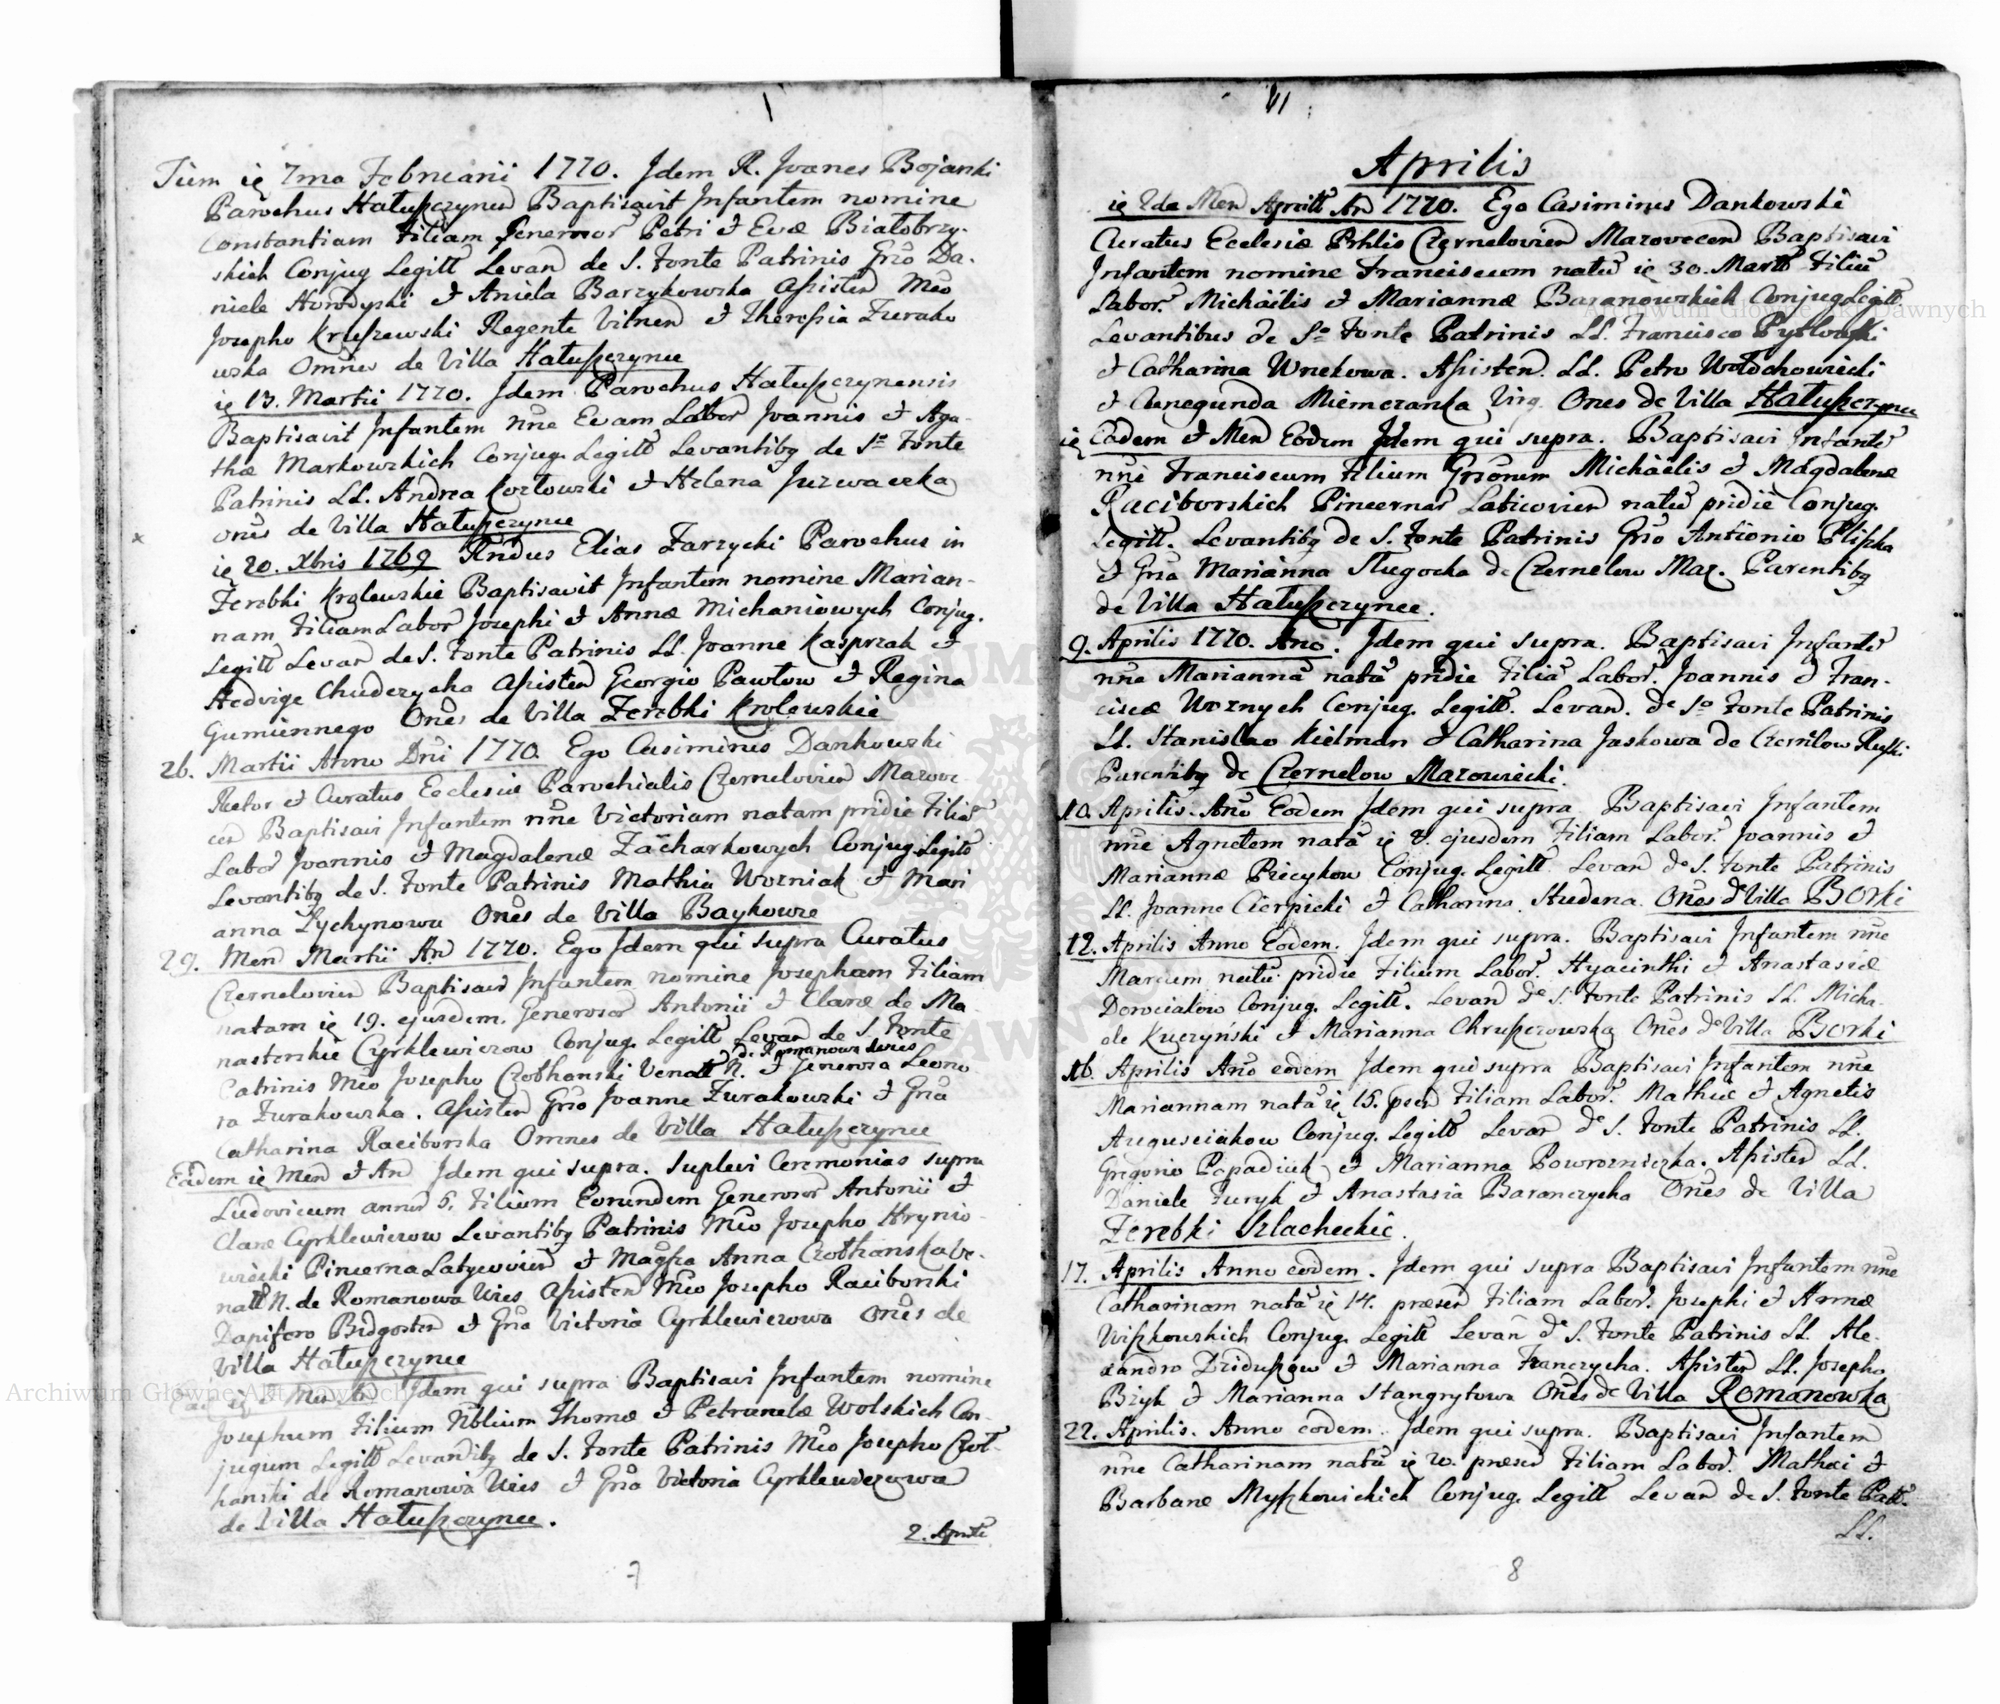 Tum ię 7ma Februarii 1770. Idem R. Joanes Bojarski
Parochus Hałuszczynen Baptisavit Infantem nomine
Constantiam Filiam Generosor Petri & Evæ Białobrzy-
skich Conjug Legitt Levan de S. Fonte Patrinis Grso Da-
niele Horodyski & Aniela Barzykowska Assisten Mco
Josepho Kruszewski Regente Vilnen & Theressia Zurako
wska Omnes de Villa Hałuszczynce
ię 13. Martii 1770. Idem Parochus Hałuszczynensis
Baptisavit Infantem nne Evam Labor Joannis & Aga-
thæ Markowskich Conjug. Legitt Levantibg de So Fonte
Patrinis LL. Andrea Kozłowski & Helena Jurwacka
ones de Villa Hałuszczynce
ię 20. Xbris 1769 Rndus Elias Zarzycki Parochus in
Zerebki Krolewskie Baptisavit Infantem nomine Marian-
nam Filiam Labor Josephi & Annæ Michaniowych Conjug.
Legitt Levan de S. Fonte Patrinis LL. Joanne Kasprzak &
Hedvige Chudczycha Assisten Georgio Pawłow & Regina
Gumiennego Ones de Villa Zerebki Krolewskie
26. Martii Anno Dni 1770. Ego Casimirus Dankowski
Rector & Curatus Ecclesiæ Parochialis Czernelovien Mazove
cen Baptisavi Infantem nne Victoriam natam pridie Filia
Labor Joannis & Magdalenæ Zacharkowych Conjug Legitt
Levantibg de S. Fonte Patrinis Mathia Wozniak & Mari
anna Łychynowa Ones de Villa Baykowce
29. Men Martii An 1770. Ego Idem qui supra Curatus
Czernelovien Baptisavi Infantem nomine Josepham Filiam
natam ię 19. ejusdem. Generosor Antonii & Claræ de Mo-
nasterskie Cyrklewiczow Conjug Legitt Levan de S. Fonte
de Romanowa Wies
Patrinis Mco Josepho Czołhanski Venatt N. & Generosa Leono
ra Zurakowska. Assisten Grso Joanne Zurakowski & Grsa
Catharina Raciborska Omnes de Villa Hałuszczynce
Eadem ię Men & An Idem qui supra. Suplevi Ceremonias supra
Ludovicum annor 6. Filium Eorundem Generosor Antonii &
Claræ Cyrklewiczow Levantibg Patrinis Mco Josepho Hrynie-
wiecki Pincerna Latyczovien & Magfca Anna Czołhanska Ve-
natt N. de Romanowa Wies Assisten Mco Josepho Raciborski
Dapifero Bidgosten & Grsa Victoria Cyrklewiczowa Ones de
Villa Hałuszczynce
Ead ię & Men An Idem qui supra Baptisavi Infantem nomine
Josephum Filium Nblium Thomæ & Petronelæ Wolskich Con-
jugum Legitt Levantibg de S. Fonte Patrinis Mco Josepho Czoł-
hanski de Romanowa Wies & Grsa Victoria Cyrklewiczowa
de Villa Hałuszczynce.
2. Aprilis
7
VI
Aprilis
ię 2da Men Aprilis An 1770. Ego Casimirus Dankowski
Curatus Ecclesiæ Prhlis Czernelovien Mazovecen Baptisavi
Infantem nomine Franciscum natu ię 30. Martii Filiu
Labor. Michaëlis & Mariannæ Baranowskich Conjug Legitt.
Levantibus de So Fonte Patrinis LL. Francisco Pytlowski
& Catharina Wnekowa. Assisten. LL. Petro Wołochowiecki
& Cunegunda Niemczanka Virg. Ones de Villa Hałuszczynce
ię Eadem & Men Eodem Idem qui supra. Baptisavi Infante
nne Franciscum Filium Grsorum Michaëlis & Magdalenæ
Raciborskich Pincernar Laticovien natu pridie Conjug.
Legitt. Levantibg de S. Fonte Patrinis Grso Antonio Pliszka
& Grsa Marianna Sługocka de Czernelow Maz. Parentibg
de Villa Hałuszczynce.
9. Aprilis 1770. Ano. Idem qui supra. Baptisavi Infante
nne Marianna nata pridie Filia Labor. Joannis & Fran-
ciscæ Woznych Conjug. Legitt. Levan. de So Fonte Patrinis
LL. Stanislao Kielman & Catharina Jaskowa de Czernilow Ruski
Parentibg de Czernelow Mazowiecki.
10. Aprilis. Ano Eodem Idem qui supra Baptisavi Infantem
nne Agnetem nata ię 8. ejusdem Filiam Labor. Joannis &
Mariannæ Piecykow Conjug. Legitt. Levan de S. Fonte Patrinis
LL. Joanne Cierpicki & Catharina Hudena Ones d Villa Borki
12. Aprilis Anno Eodem. Idem qui supra. Baptisavi Infantem nne
Marcum natu pridie Filium Labor. Hyacinthi & Anastasiæ
Derociakow Conjug. Legitt. Levan de S. Fonte Patrinis LL. Micha-
ele Kuczyński & Marianna Chruszczowska Ones de Villa Borki
16. Aprilis Ano eodem Idem qui supra Baptisavi Infantem nne
Mariannam nata ię 15. psen Filiam Labor. Mathiæ & Agnetis
Augusciakow Conjug. Legitt Levan de S. Fonte Patrinis LL.
Gregorio Popadiuk & Marianna Powrozniczka. Assisten LL.
Daniele Furyk & Anastasia Baranczycha Ones de Villa
Zerebki Szlacheckie.
17. Aprilis Anno eodem. Idem qui supra Baptisavi Infantem nne
Catharinam nata ię 14. præsen Filiam Labor. Josephi & Annæ
Wiszkowskich Conjug. Legitt Levan de S. Fonte Patrinis LL. Ale-
xandro Dziduszow & Marianna Franczycha. Assisten LL. Josepho
Bzyk & Marianna Stangrytowa Ones de Villa Romanowka
22. Aprilis. Anno eodem. Idem qui supra. Baptisavi Infantem
nne Catharinam nata ię 20. præsen Filiam Labor. Mathæi &
Barbaræ Myszkowickich Conjug. Legitt Levan de S. Fonte Patt.
LL.
8
Archiwum Główne Akt Dawnych
Archiwum Główne Akt Dawnych